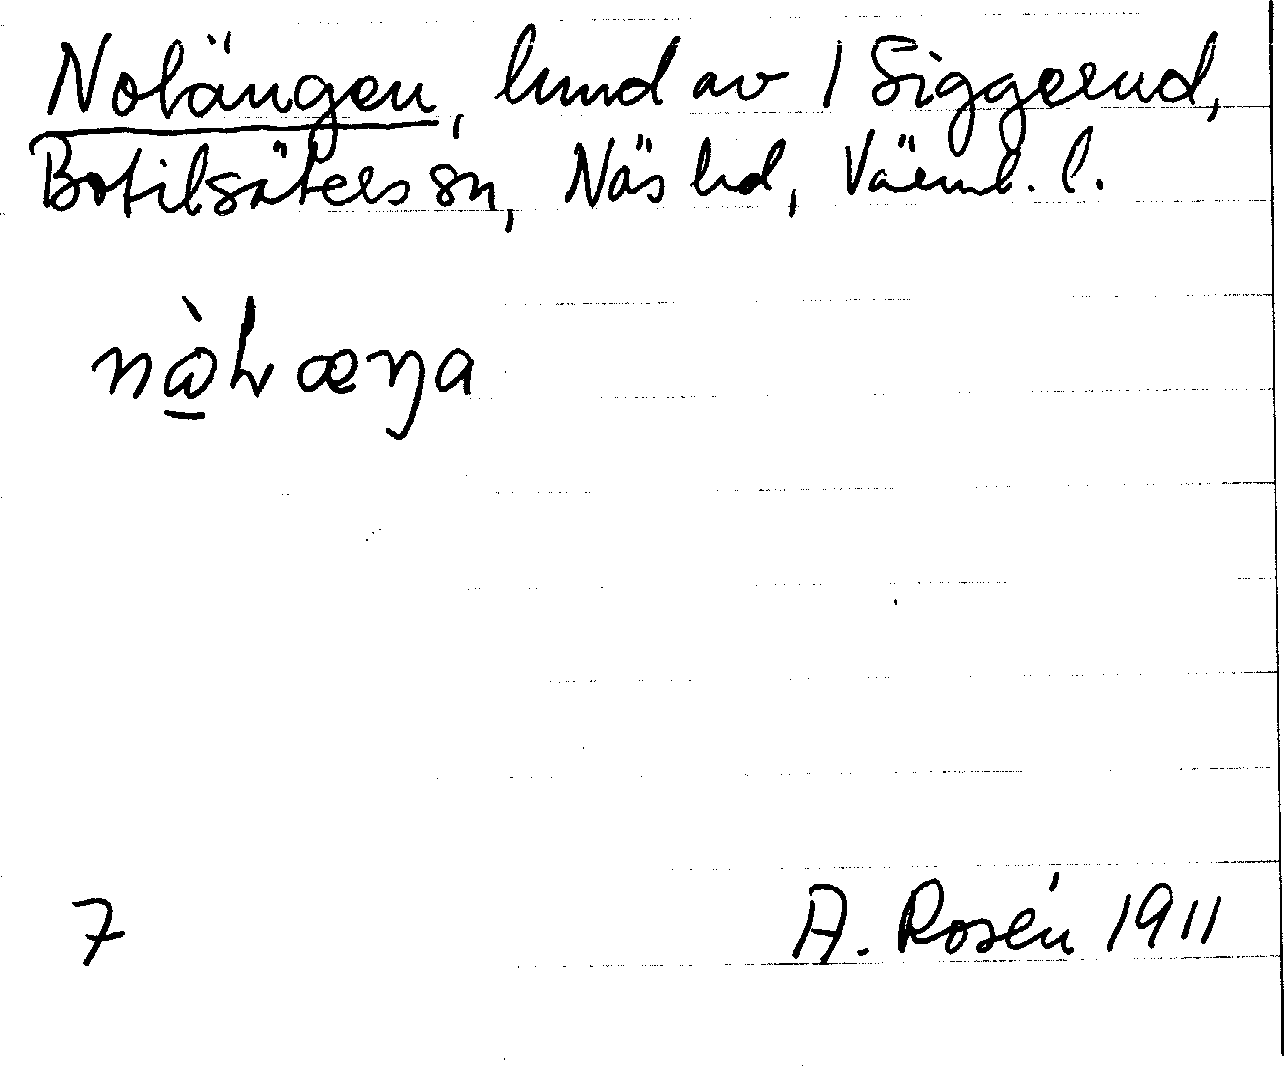 Nolängen, lund av 1 Siggerud,
Botilsäters sn, Näs hd, Värml. l.
7
A. Rosén 1911